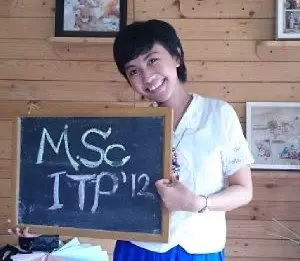 M.Sc
ITP'12